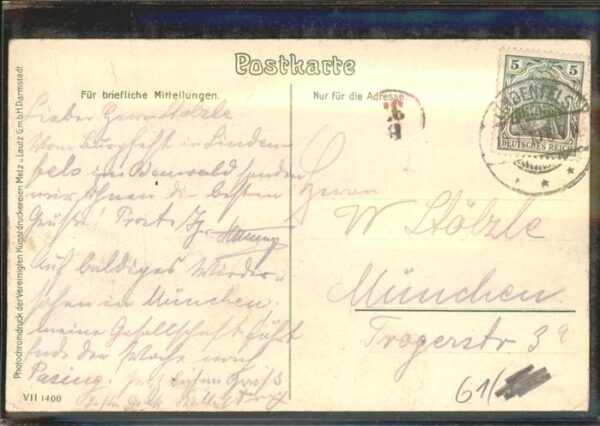 Postkarte
Für briefliche Mitteilungen.
Nur für die Adresse.
Lieber Herr Stölzle
Vom Burgfest in Linden-
fels im Odenwald senden
wir Ihnen die besten
Grüße! Prost! Ihr
Auf baldiges Wieder-
sehen in München.
meine Gesellschaft
Ende der Woche nach
Pasing.
Herrn
W Stölzle
München
Trogerstr 39
61/
5 5
DEUTSCHES REICH
LINDENFELS
VII 1400
Photochromdruck der Vereinigten Kunstdruckereien Metz & Lautz G.m.b.H. Darmstadt